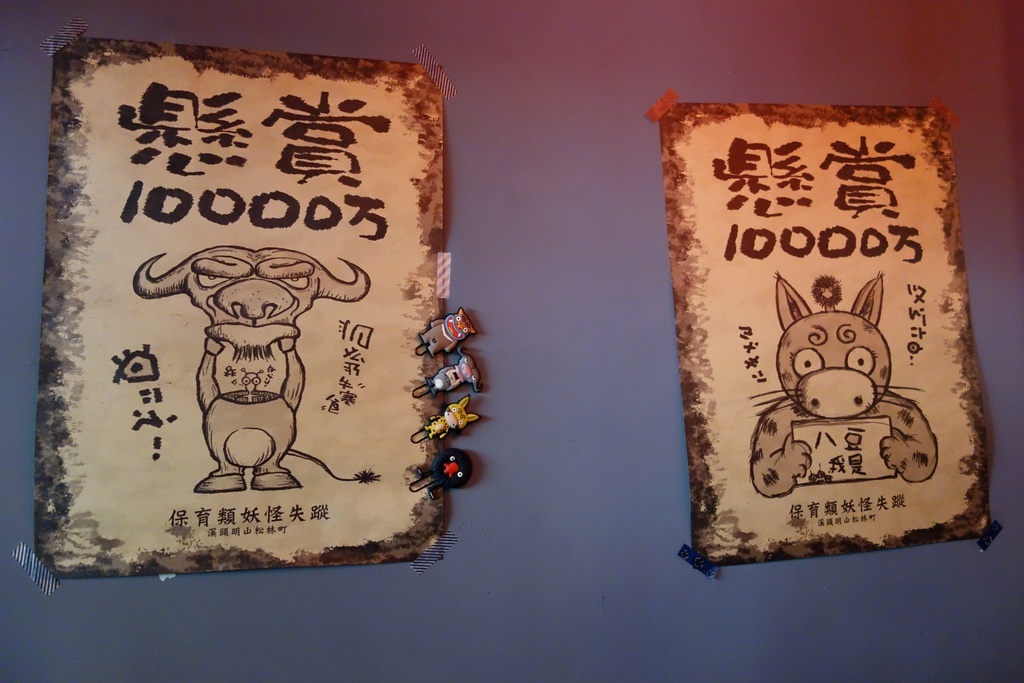 懸賞
10000万
保育類妖怪失蹤
溪頭明山松林町
懸賞
10000万
八豆
我是
保育類妖怪失蹤
溪頭明山松林町